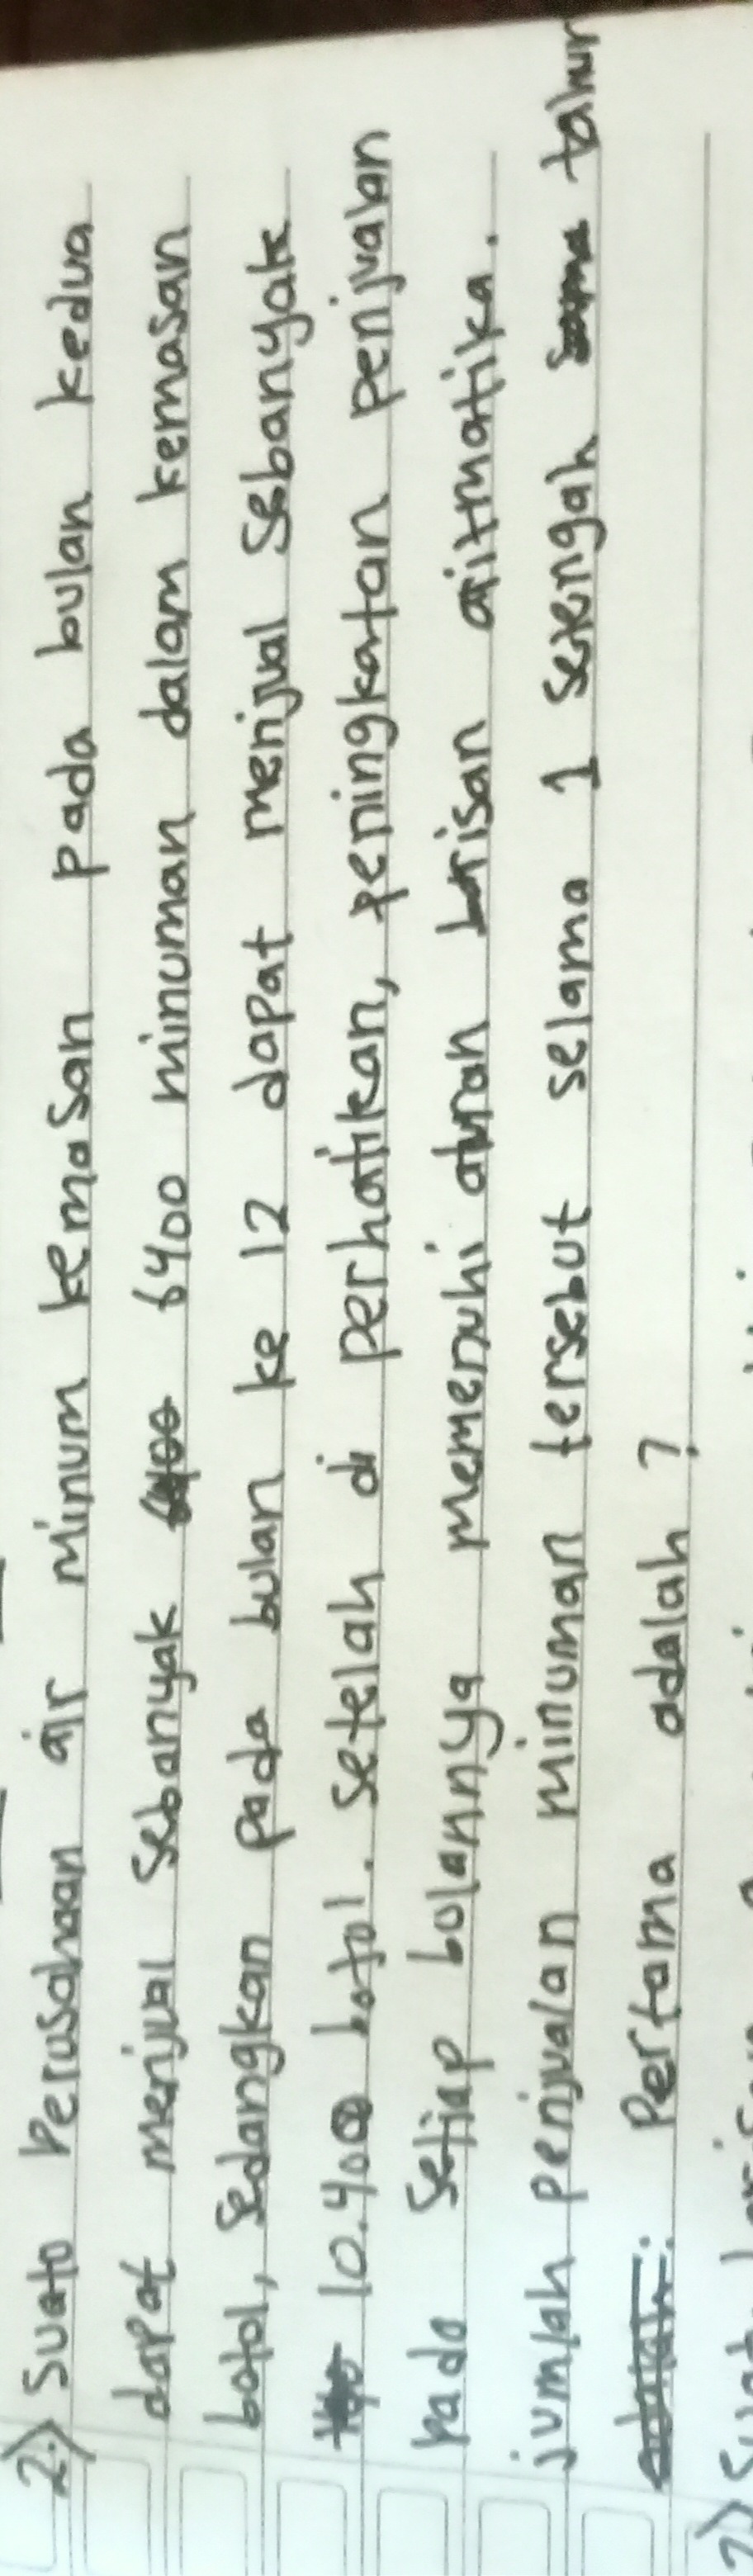 2.) Suato Perusahaan air minum kemasan pada bulan kedua
dapat menjual sebanyak 6400 minuman dalam kemasan
botol, sedangkan pada bulan ke 12 dapat menjual sebanyak
10.400 botol. setelah di perhatikan, peningkatan penjualan
pada setiap bulannya memenuhi aturan brisan aritmatika.
jumlah penjualan minuman tersebut selama 1 setengah tahun
Pertama adalah ?